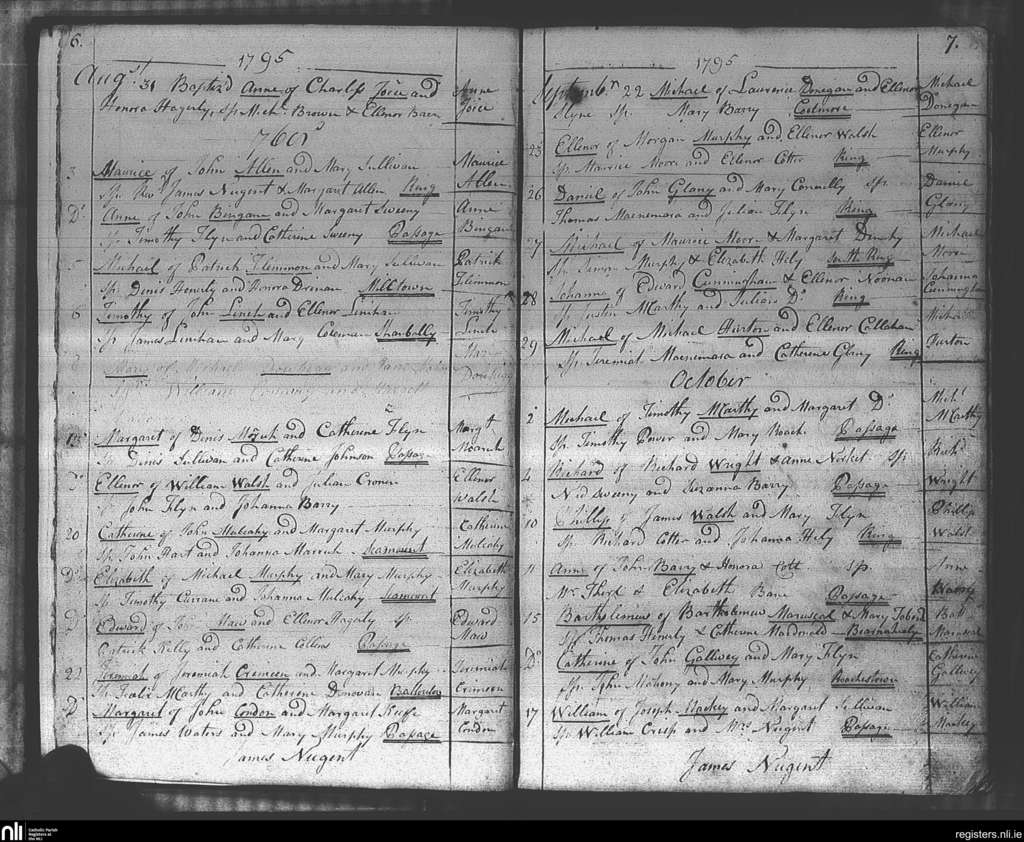 6.
1795
Augst 31 Baptizd Anne of Charls Joice and
Honora Hagerty, sp. Mich. Brown & Ellenor Barn
Anne
Joice
7ber
3 Maurice of John Allen and Mary Sullivan
Sp. Revd James Nugent & Margaret Allen Ring
Maurice
Allen
Do Anne of John Bingam and Margaret Sweeny
Sp. Timothy Flyn and Catherine Sweeny Passage
Anne
Bingam
5 Michael of Patrick Flemmon and Mary Sullivan
Sp. Denis Henerly and Honora Drenan Milltown
Patrick
Flemmon
6 Timothy of John Linch and Ellenor Linehan
Sp. James Linehan and Mary Shanbally
Timothy
Linch
Mary of
Sp. William
Mary
Margaret of Denis and Catherine Flyn
Sp. Denis Sullivan and Catherine Johnson Passage
Margt
Do Ellenor of William Walsh and Julian Cronen
John Flyn and Johanna Barry
Ellenor
Walsh
20 Catherine of John Mulcahy and Margaret Murphy
Sp. John Hart and Johanna
Catherine
Mulcahy
Do Elizabeth of Michael Murphy and Mary Murphy
Sp. Timothy Currane and Johanna Mulcahy
Elizabeth
Murphy
Do Edward of Maw and Ellenor Hagaty sp.
Patrick Kelly and Catherine Collens Passage
Edward
Maw
22 Jeremiah of Jeremiah Cremeen and Margaret Murphy
Sp. McCarthy and Catherine Donovan
Jeremiah
Crimeen
Do Margaret of John Condon and Margaret Keefe
Sp. James Waters and Mary Murphy Passage
Margaret
Condon
James Nugent
7.
1795
Septembr 22 Michael of Laurence Donegan and Ellenor
Slyne Sp. Mary Barry Coolmore
Michael
Donegan
25 Ellenor of Morgan Murphy and Ellenor Walsh
Sp. Maurice More and Ellenor Cotter Ring
Ellenor
Murphy
26 Daniel of John Glany and Mary Connelly Sp.
Thomas Macnemara and Julian Flyn Ring
Daniel
Glany
27 Michael of Maurice Moore & Margaret
Sp. Simon Murphy & Elizabeth Hely South Ring
Michael
More
28 Johanna of Edward Cunningham & Ellenor Noonan
Sp. Justin McCarthy and Julian Do Ring
Johanna
Cunningham
29 Michael of Michael Hurton and Ellenor Callahan
Sp. Jeremiah Macnemara and Catherine Glany Ring
Michael
Hurton
October
2 Michael of Timothy McCarthy and Margaret Do
Sp. Timothy Power and Mary Roach Passage
Michl
McCarthy
4 Richard of Richard Wright & Anne Sp.
Ned Sweeny and Suzanna Barry Passage
Richd
Wright
10 Phillip of James Walsh and Mary Flyn
Sp. Richard Cotter and Johanna Hely Ring
Phillip
Walsh
11 Anne of John Barry & Honora Cott Sp.
Wm & Elizabeth Bane Passage
Anne
Barry
15 Bartholemus of Bartholomew & Mary
Sp. Thomas Henerly & Catherine Macdonald
Bat
Do Catherine of John Gallwey and Mary Flyn
Sp. John Mahony and Mary Murphy Roachestown
Catherine
Gallwey
17 William of Joseph Mackey and Margaret Sullivan
Sp. William Creep and Mrs Nugent Passage
William
Mackey
James Nugent
nli
Catholic Parish
Registers at
the NLI
registers.nli.ie